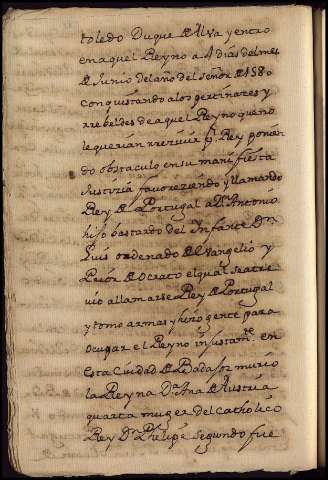 toledo Duque de Alva y entro
en aquel Reyno a 4 dias del mes
de Junio del año del señor de 1580
conquistando a los pertinazes y
rrebeldes de aquel Reyno que no
le querian rrezivir por Rey ponien
do obstaculo en su manifiesta
Justizia favoreziendo y llamando
Rey de Portugal a Dn Antonio
hijo bastardo del Infante Dn
Luis ordenado de Evangelio y
Prior de Ocrato el qual se atre
vio a llamarse Rey de Portugal
y tomo armas y hizo gente para
ocupar el Reyno injustamte en
esta Ciudad de Badajoz murio
la Reyna Da Ana de Austria
quarta muger del Catholico
Rey Dn Phelipe segundo fue